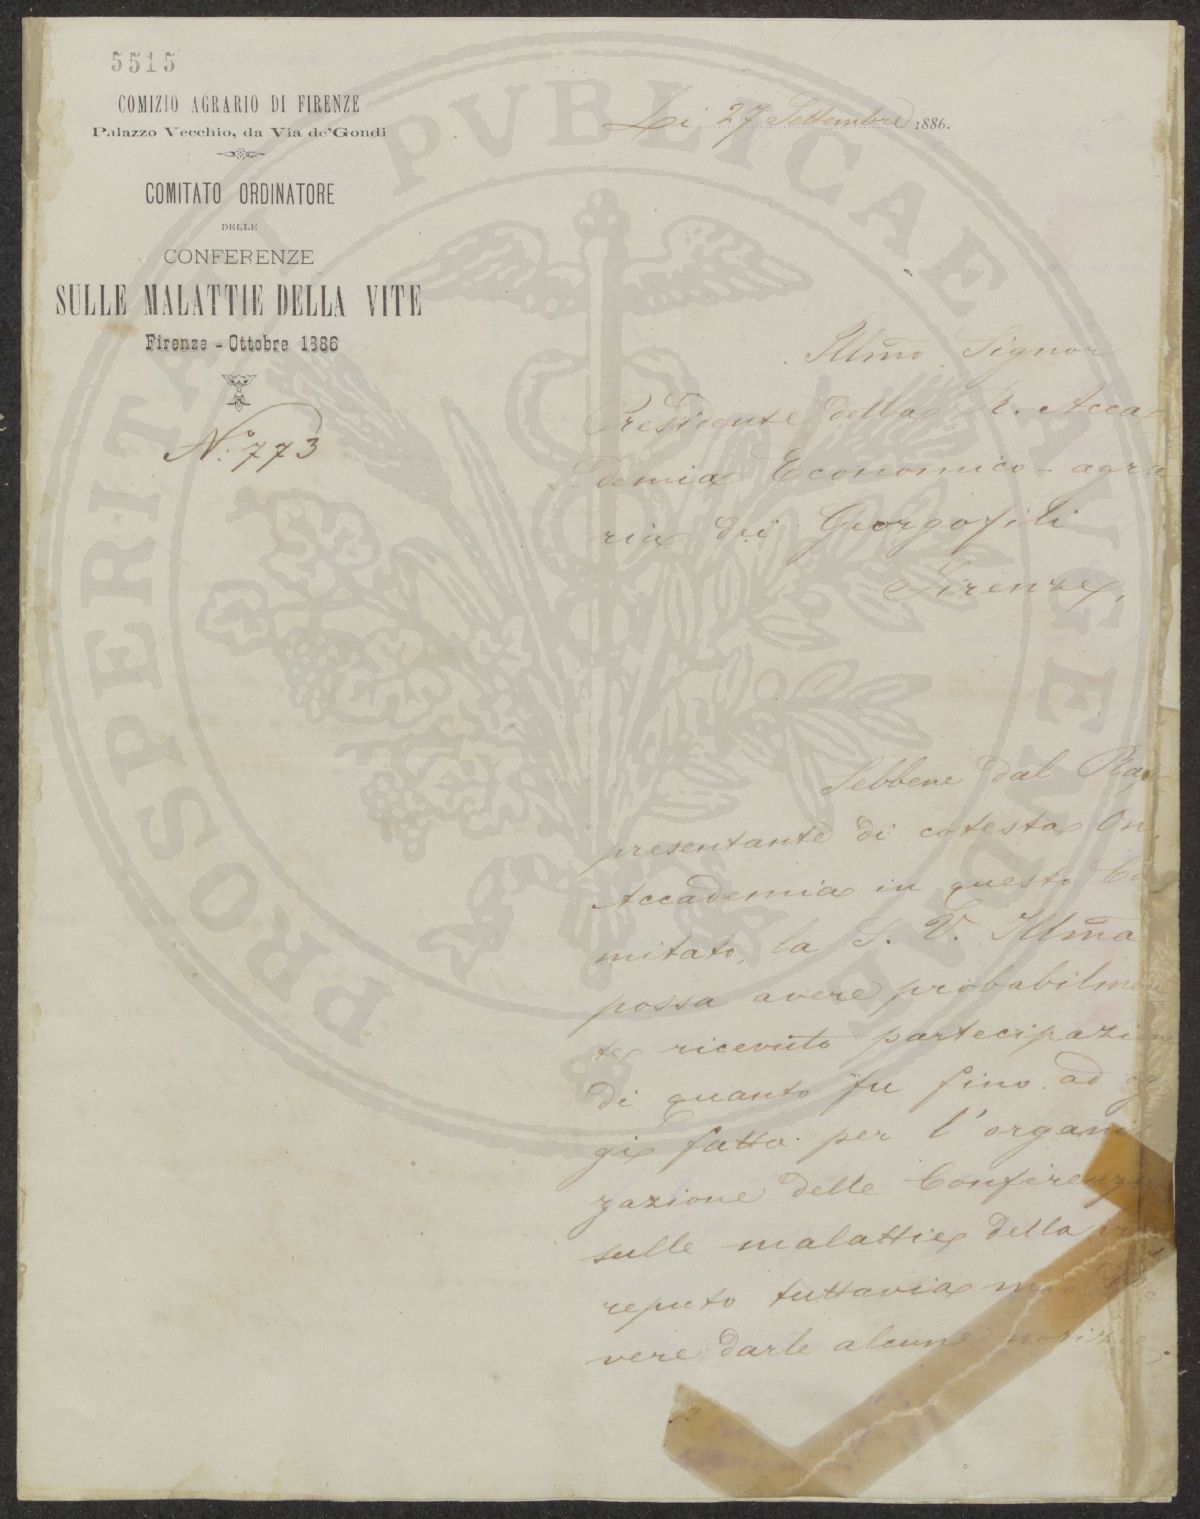 5515
COMIZIO AGRARIO DI FIRENZE
Palazzo Vecchio, da Via de' Gondi
COMITATO ORDINATORE
DELLE
CONFERENZE
SULLE MALATTIE DELLA VITE
Firenze - Ottobre 1886
N.° 773
Li 27 Settembre 1886.
Illmo Signor
Presidente della R. Acca-
demia Economico-agra
ria dei Georgofili
Firenze.
Sebbene dal Rap
presentante di cotesta On.
Accademia in questo Co
mitato, la S. V. Illma
possa avere probabilmen
te ricevuto partecipazion
di quanto fu fino ad og
gi fatto per l'organiz
zazione delle Conferenze
sulle malattie della vite
reputo tuttavia mio do
vere darle alcune notizie,
PROSPERITATI PVBLICAE AVGENDAE